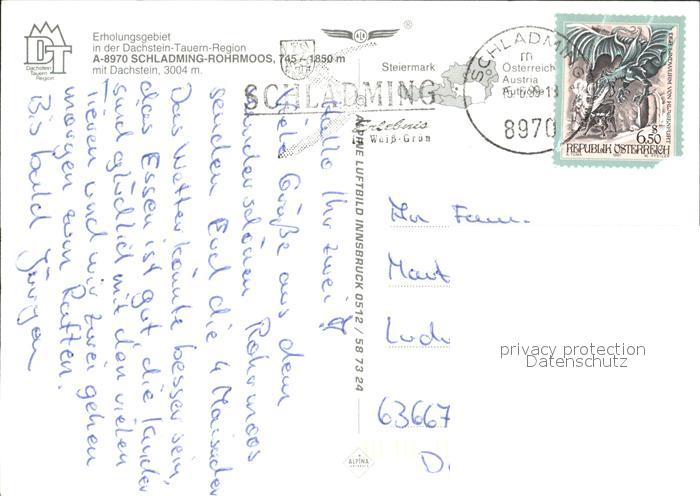 Erholungsgebiet
in der Dachstein-Tauern-Region
A-8970 SCHLADMING-ROHRMOOS, 745 - 1850 m
mit Dachstein, 3004 m.
DT
Dachstein
Tauern
Region
Steiermark
Österreich
Austria
SCHLADMING
Erlebnis
Weiß-Grün
SCHLADMING
8970
6.50
REPUBLIK ÖSTERREICH
ALPINE LUFTBILD INNSBRUCK 0512 / 58 73 24
ALPINA
Hallo Ihr zwei!
Viele Grüße aus dem
wunderschönen Rohrmoos
senden Euch die 4 Maisader
Das Wetter könnte besser sein,
das Essen ist gut, die Kinder
sind glücklich mit den vielen
Tieren und wir zwei gehen
morgen zum Raften.
Bis bald Jürgen
An Fam.
Mart
Ludw
63667
privacy protection
Datenschutz